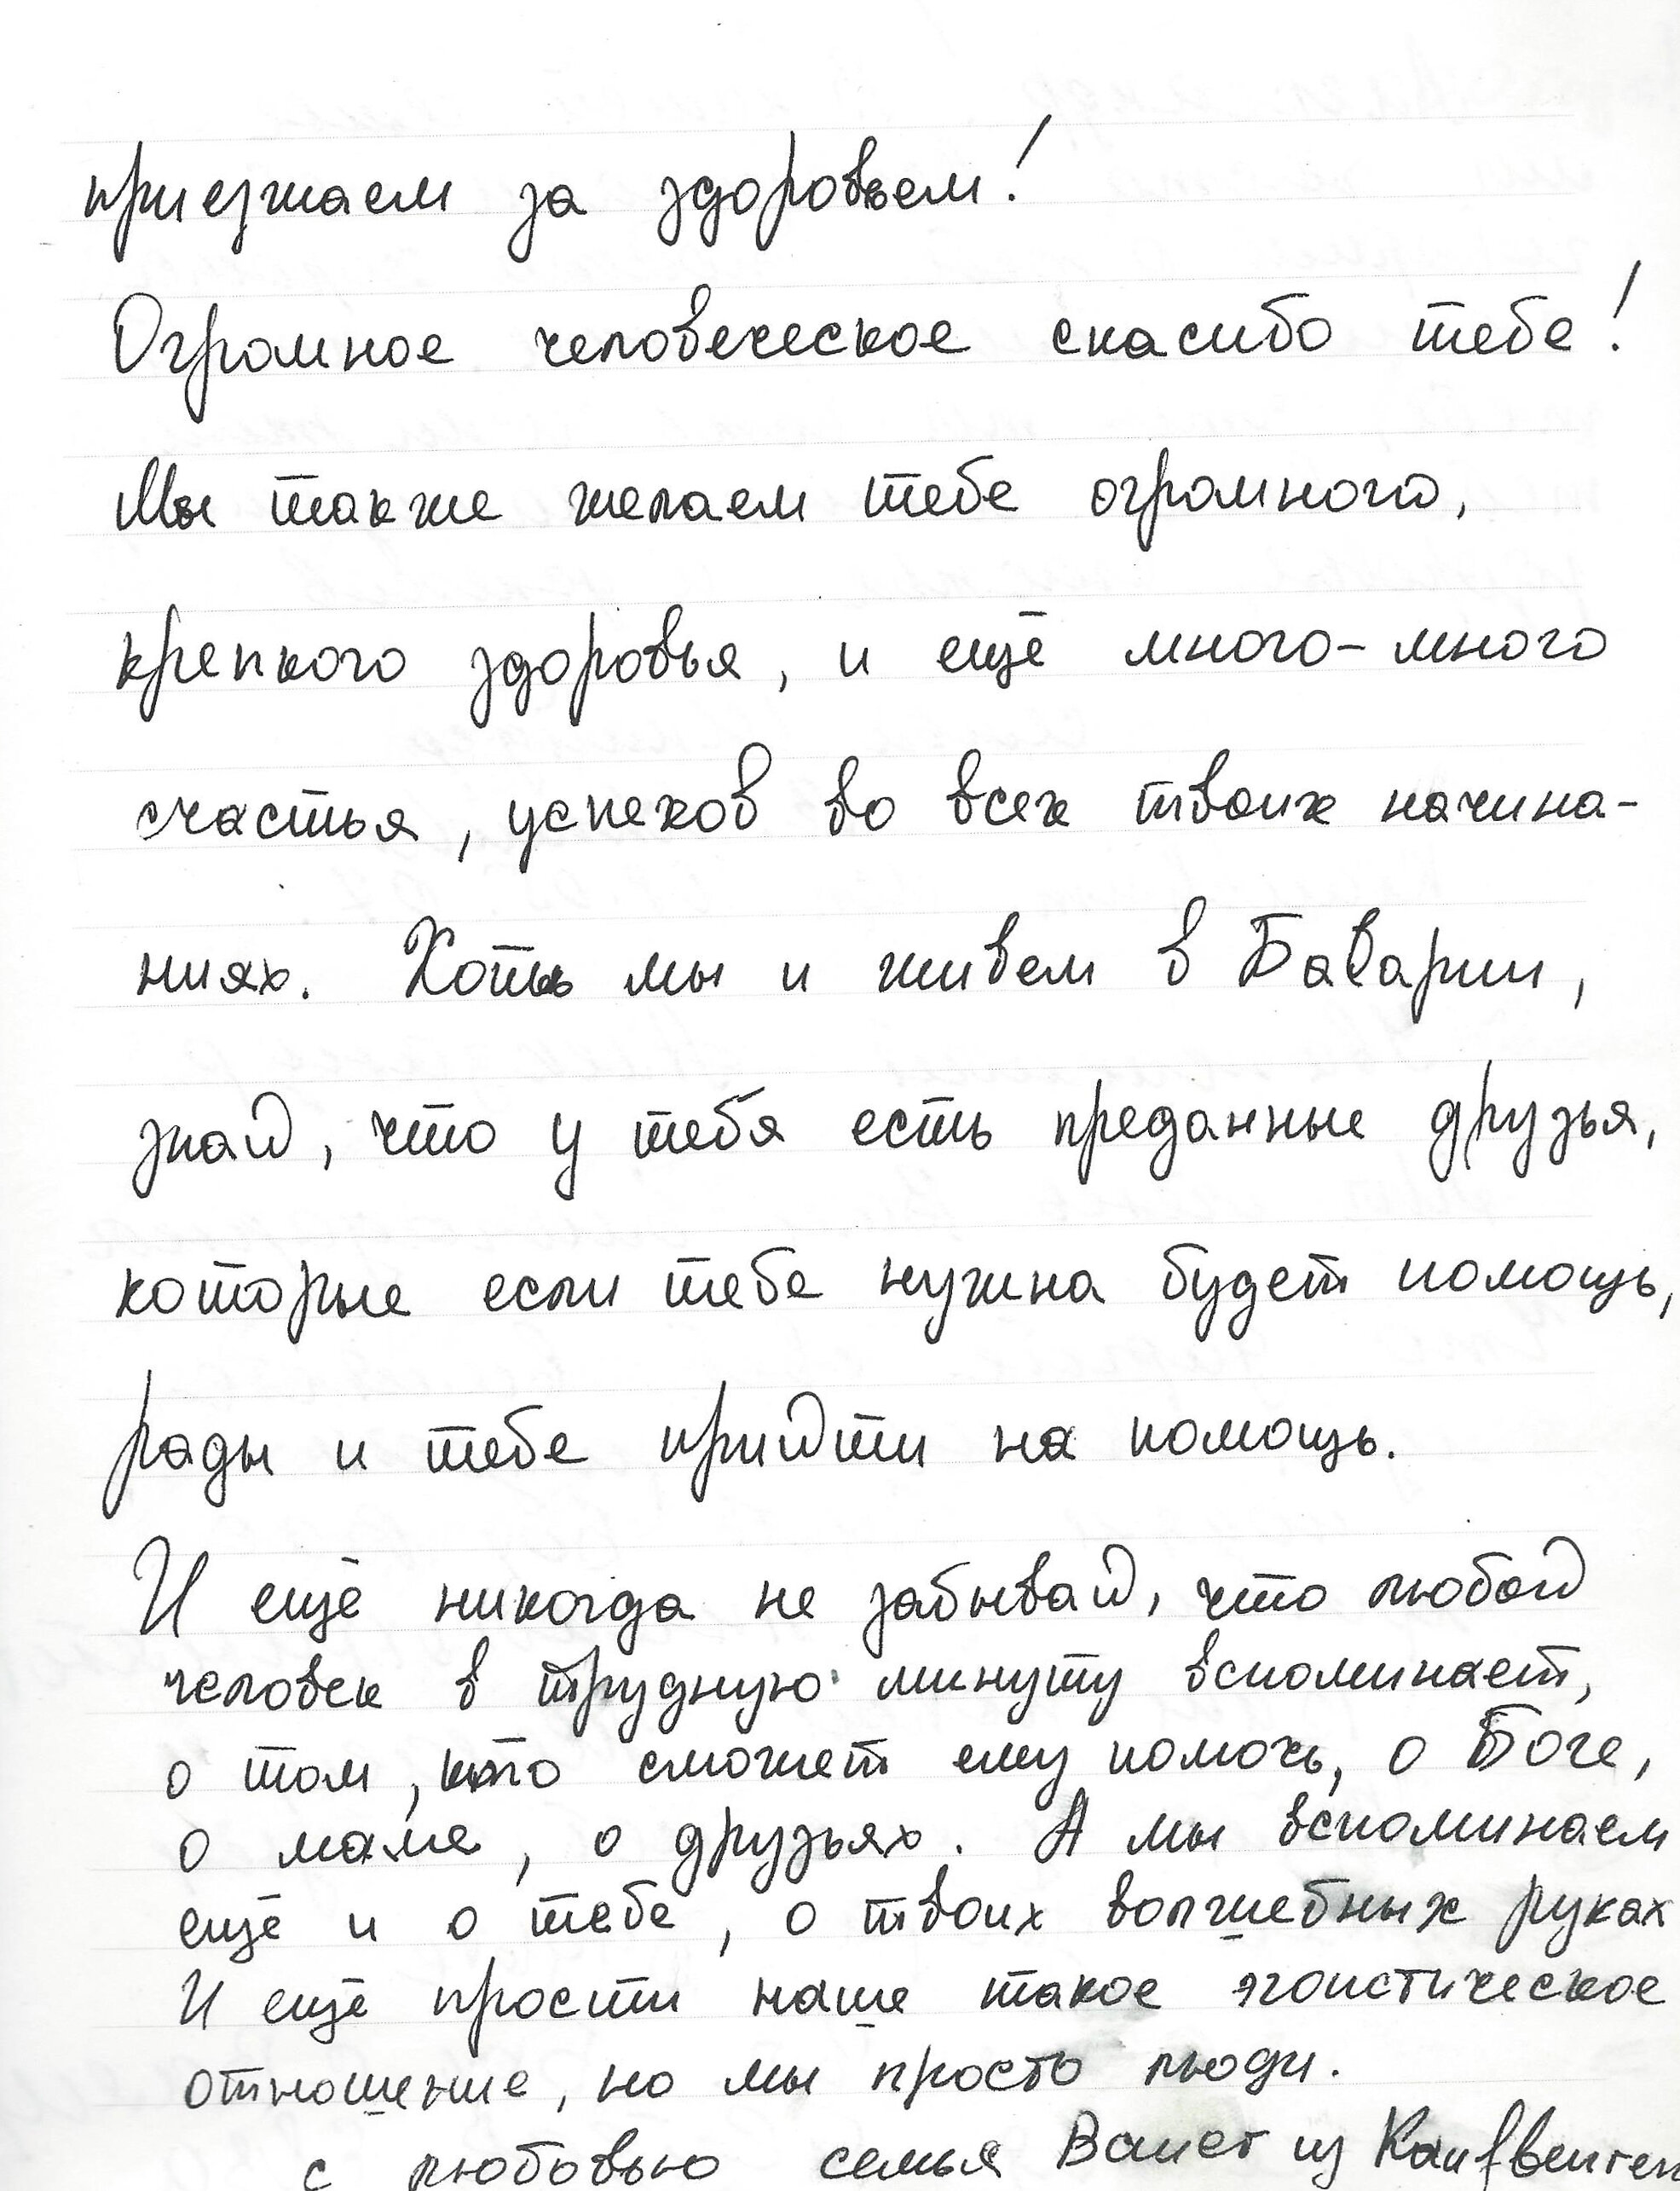 приезжаем за здоровьем!
Огромное человеческое спасибо тебе!
Мы также желаем тебе огромного,
крепкого здоровья, и ещё много-много
счастья, успехов во всех твоих начина-
ниях. Хоть мы и живем в Баварии,
знай, что у тебя есть преданные друзья,
которые если тебе нужна будет помощь,
рады и тебе прийти на помощь.
И ещё никогда не забывай, что любой
человек в трудную минуту вспоминает,
о том, кто сможет ему помочь, о Боге,
о маме, о друзьях. А мы вспоминаем
ещё и о тебе, о твоих волшебных руках
И ещё прости наше такое эгоистическое
отношение, но мы просто люди.
с любовью семья из